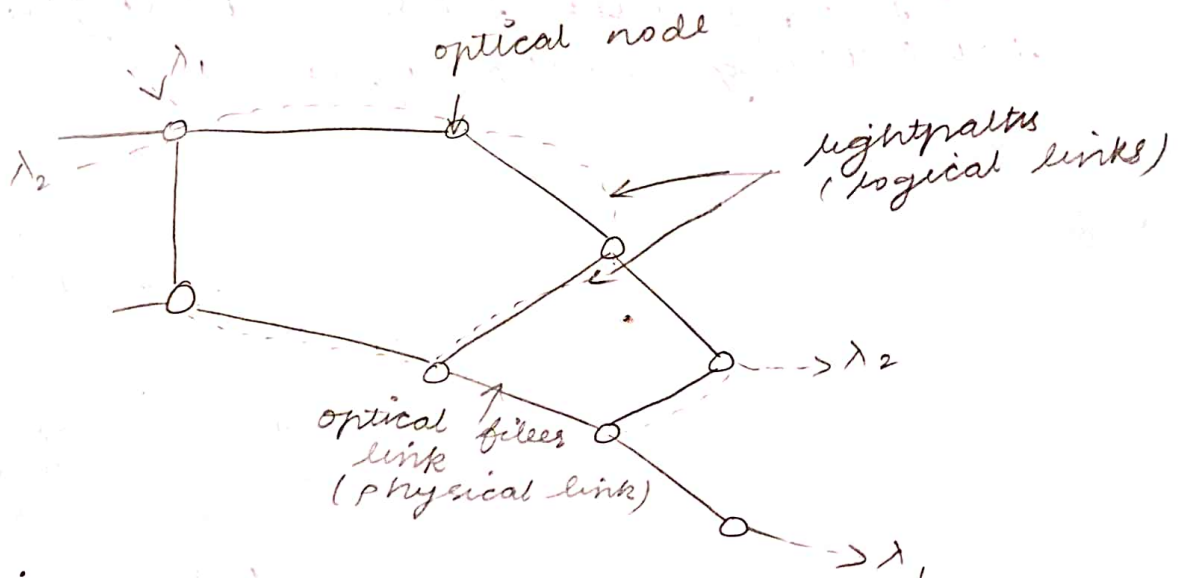 λ₁
optical node
λ₂
lightpaths
(logical links)
λ₂
optical fiber
link
(physical link)
λ₁